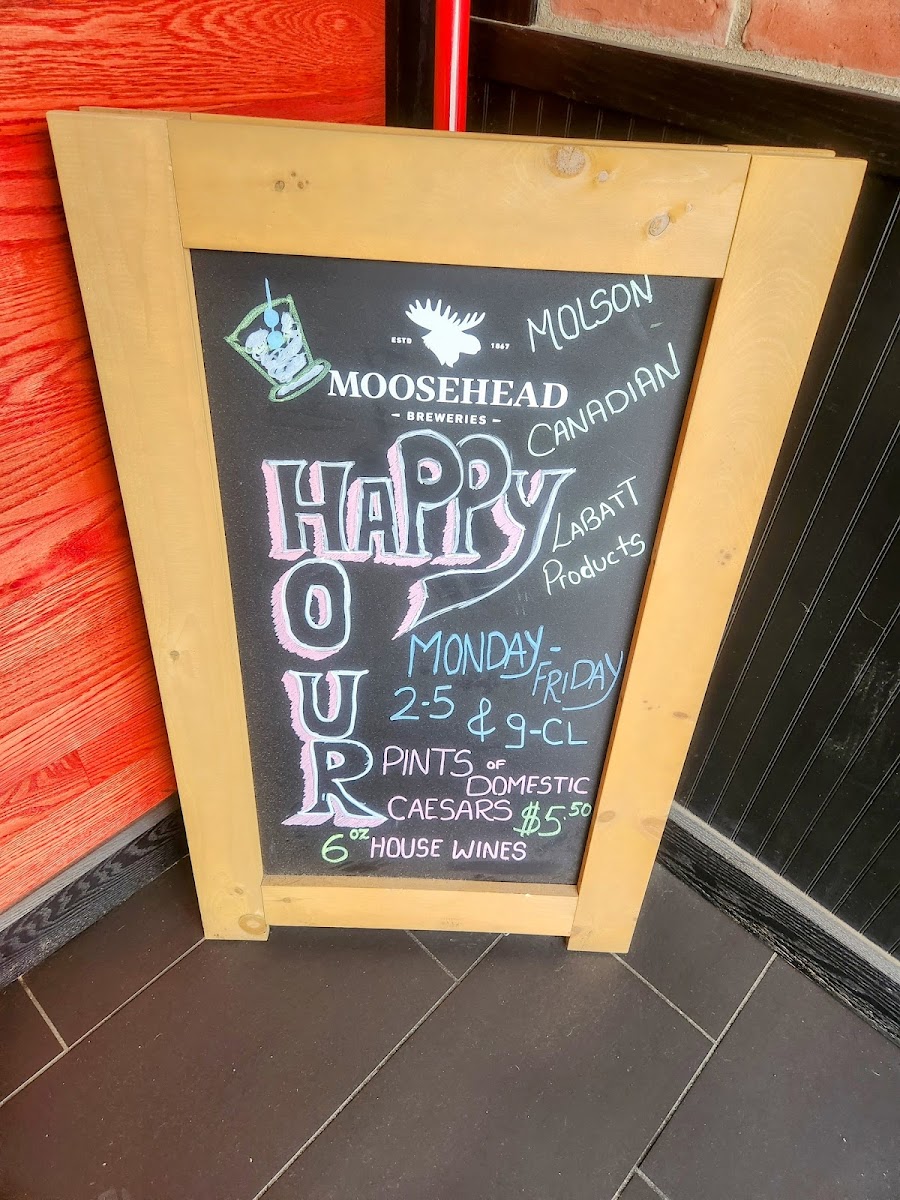 ESTD 1867
MOOSEHEAD
- BREWERIES -
MOLSON
CANADIAN
LABATT
Products
HAPPY
HOUR
MONDAY-
FRIDAY
2-5 & 9-CL
PINTS OF
DOMESTIC
CAESARS $5.50
6oz HOUSE WINES